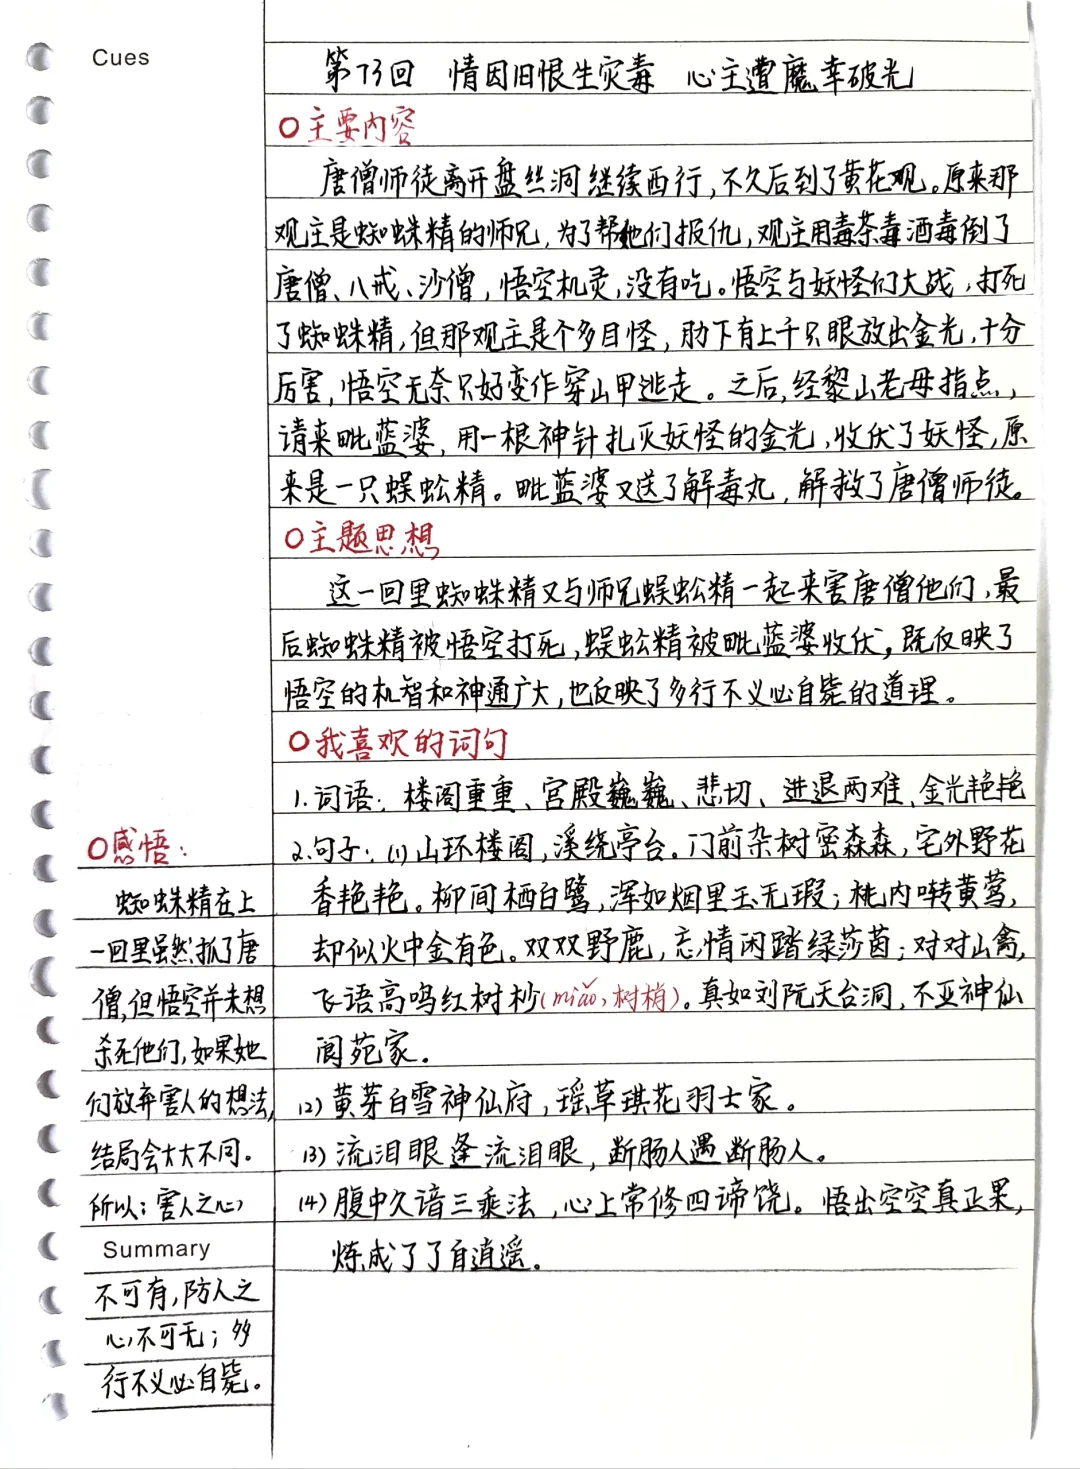 Cues
第73回 情因旧恨生灾毒 心主遭魔幸破光
○主要内容
唐僧师徒离开盘丝洞继续西行,不久后到了黄花观。原来那
观主是蜘蛛精的师兄,为了帮她们报仇,观主用毒茶毒酒毒倒了
唐僧、八戒、沙僧,悟空机灵,没有吃。悟空与妖怪们大战,打死
了蜘蛛精,但那观主是个多目怪,肋下有上千只眼放出金光,十分
厉害,悟空无奈只好变作穿山甲逃走。之后,经黎山老母指点,
请来毗蓝婆,用一根神针扎灭妖怪的金光,收伏了妖怪,原
来是一只蜈蚣精。毗蓝婆又送了解毒丸,解救了唐僧师徒。
○主题思想
这一回里蜘蛛精又与师兄蜈蚣精一起来害唐僧他们,最
后蜘蛛精被悟空打死,蜈蚣精被毗蓝婆收伏,既反映了
悟空的机智和神通广大,也反映了多行不义必自毙的道理。
○我喜欢的词句
1.词语:楼阁重重、宫殿巍巍、悲切、进退两难、金光艳艳
2.句子:(1)山环楼阁,溪绕亭台。门前杂树密森森,宅外野花
香艳艳。柳间栖白鹭,浑如烟里玉无瑕;桃内啭黄莺,
却似火中金有色。双双野鹿,忘情闲踏绿莎茵;对对山禽,
飞语高鸣红树杪(miǎo,树梢)。真如刘阮天台洞,不亚神仙
阆苑家。
(2)黄芽白雪神仙府,瑶草琪花羽士家。
(3)流泪眼逢流泪眼,断肠人遇断肠人。
(4)腹中久谙三乘法,心上常修四谛饶。悟出空空真正果,
炼成了了自逍遥。
○感悟:
蜘蛛精在上
一回里虽然抓了唐
僧,但悟空并未想
杀死他们,如果她
们放弃害人的想法,
结局会大大不同.
所以:害人之心
Summary
不可有,防人之
心不可无;多
行不义必自毙。